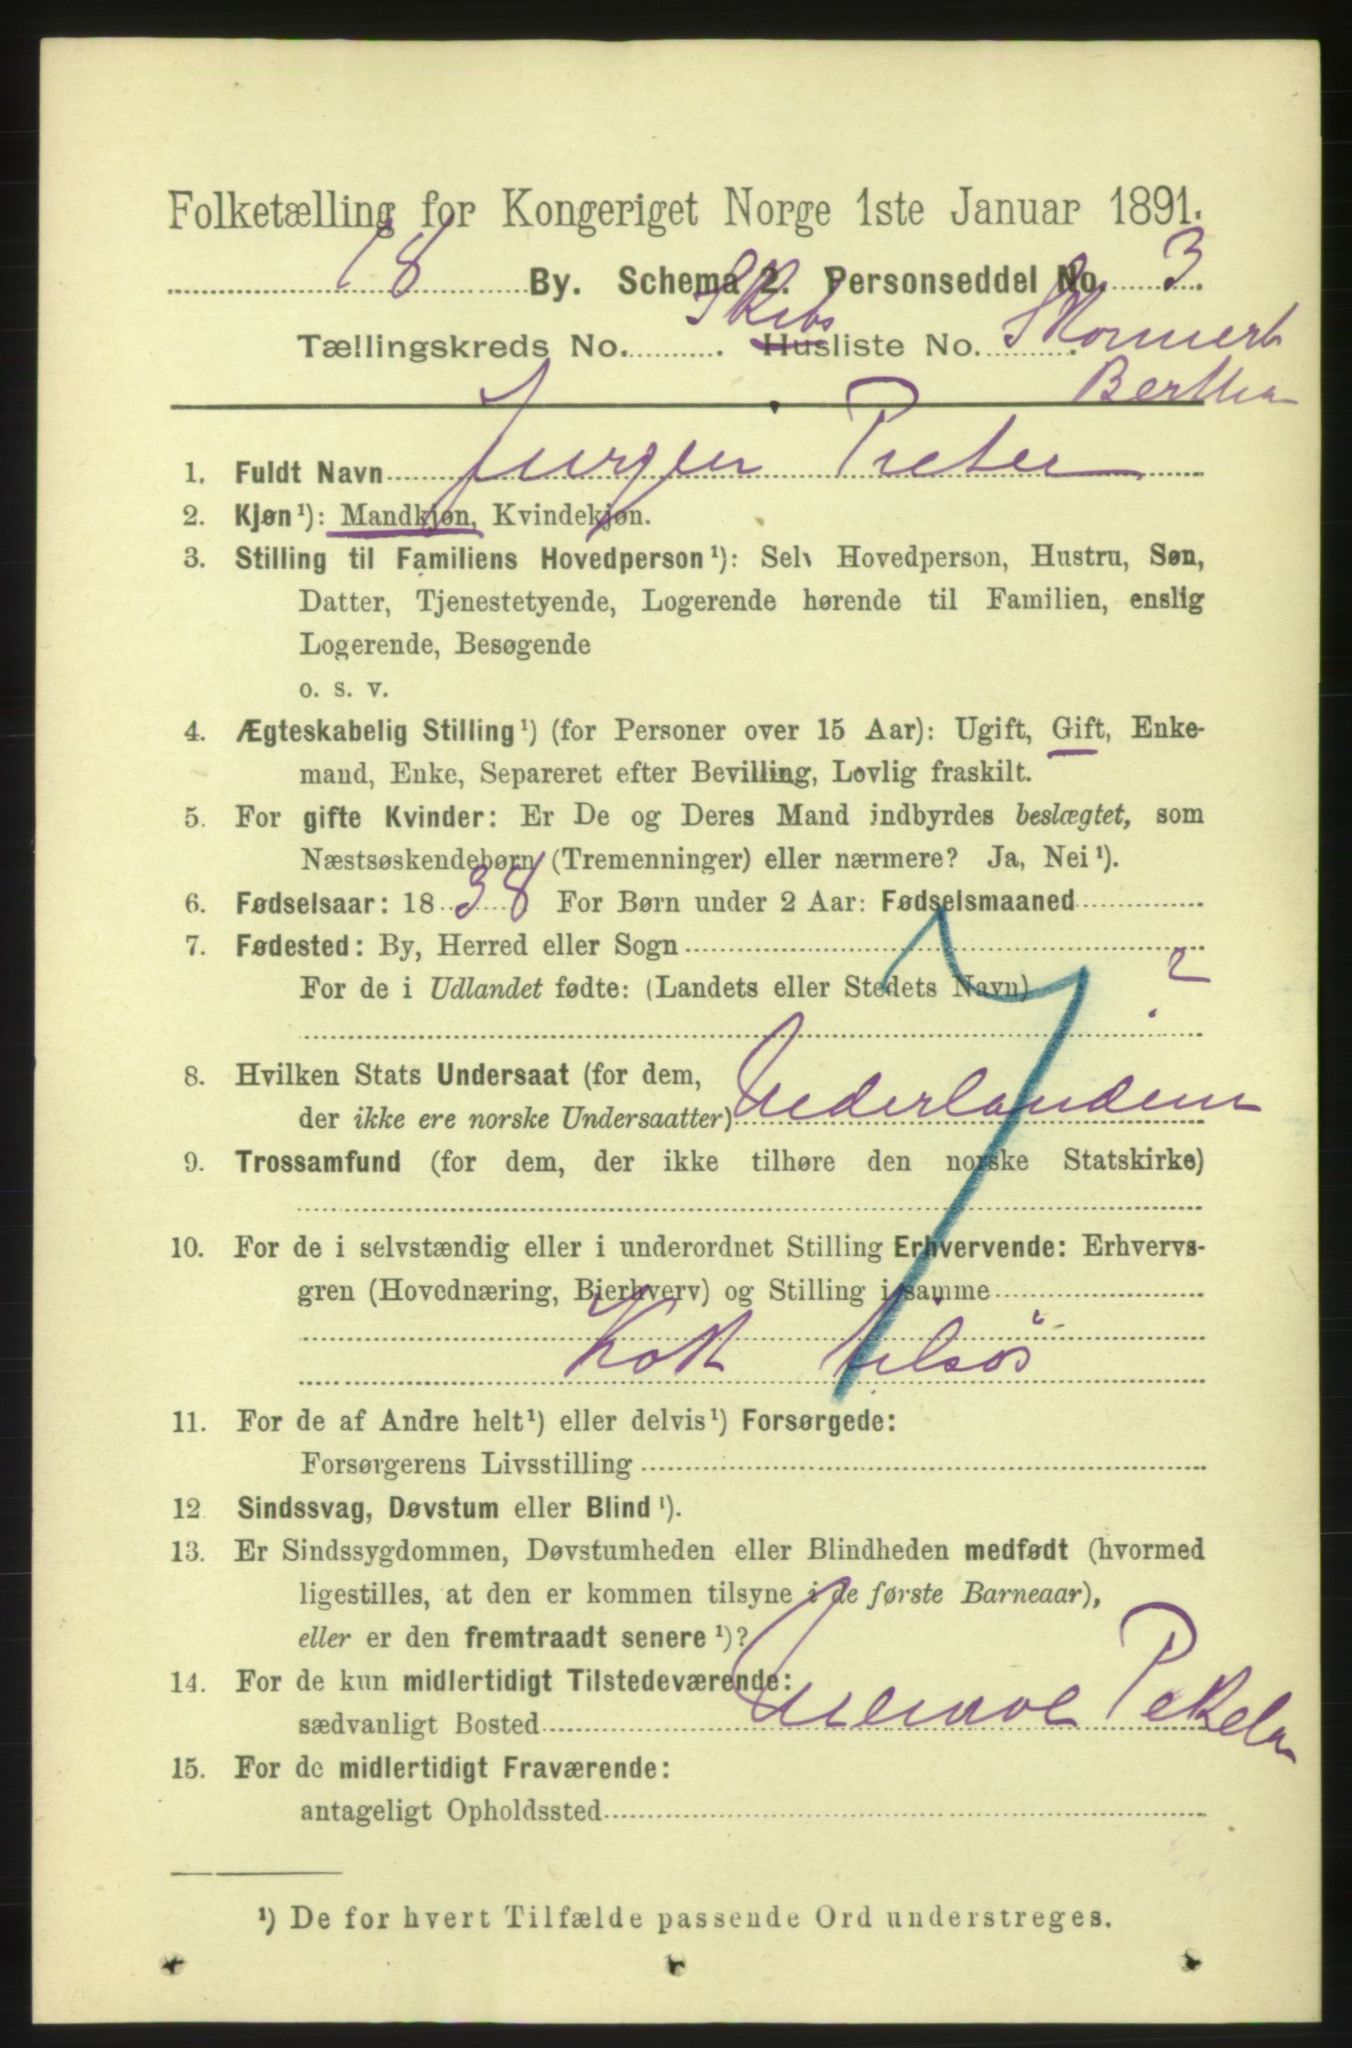 Folketælling for Kongeriget Norge 1ste Januar 1891.
18 By. Schema 2. Personseddel No. 3
Tællingskreds No. Skibs Husliste No. Skonnert
Bertha
1. Fuldt Navn Jurgen Pieter
2. Kjøn ¹): Mandkjøn, Kvindekjøn.
3. Stilling til Familiens Hovedperson ¹): Selv Hovedperson, Hustru, Søn,
Datter, Tjenestetyende, Logerende hørende til Familien, enslig
Logerende, Besøgende
o. s. v.
4. Ægteskabelig Stilling ¹) (for Personer over 15 Aar): Ugift, Gift, Enke-
mand, Enke, Separeret efter Bevilling, Lovlig fraskilt.
5. For gifte Kvinder: Er De og Deres Mand indbyrdes beslægtet, som
Næstsøskendebørn (Tremenninger) eller nærmere? Ja, Nei ¹).
6. Fødselsaar: 1838 For Børn under 2 Aar: Fødselsmaaned
7. Fødested: By, Herred eller Sogn
For de i Udlandet fødte: (Landets eller Stedets Navn) ?
8. Hvilken Stats Undersaat (for dem,
der ikke ere norske Undersaatter) Nederlandern
9. Trossamfund (for dem, der ikke tilhøre den norske Statskirke)
10. For de i selvstændig eller i underordnet Stilling Erhvervende: Erhvervs-
gren (Hovednæring, Bierhverv) og Stilling i samme
Kok tilsøs
11. For de af Andre helt ¹) eller delvis ¹) Forsørgede:
Forsørgerens Livsstilling
12. Sindssvag, Døvstum eller Blind ¹).
13. Er Sindssygdommen, Døvstumheden eller Blindheden medfødt (hvormed
ligestilles, at den er kommen tilsyne i de første Barneaar),
eller er den fremtraadt senere ¹)?
14. For de kun midlertidigt Tilstedeværende:
sædvanligt Bosted Pekela
15. For de midlertidigt Fraværende:
antageligt Opholdssted
¹) De for hvert Tilfælde passende Ord understreges.